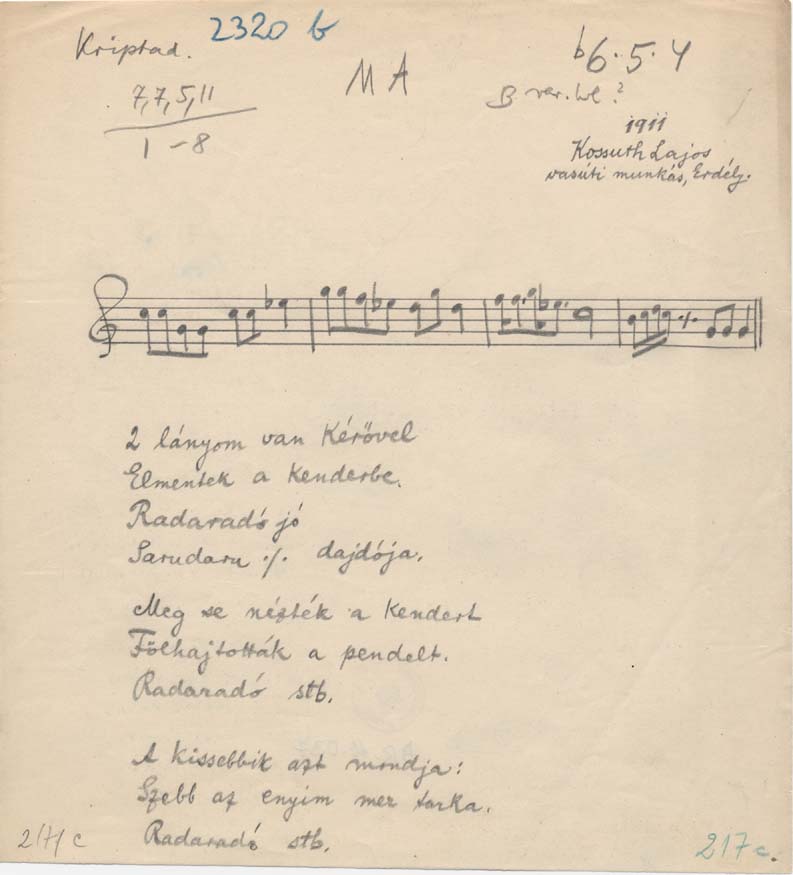 Kriptad.
2320 b
MA
b6. 5. 4
7,7,5,11
1-8
B var. ?
1911
Kossuth Lajos
vasúti munkás, Erdély.
2 lányom van Kérővel
Elmentek a Kenderbe.
Radaradó jó
Sarudaru ./. dajdója.
Meg se nézték a Kendert
Fölhajtották a pendelt.
Radaradó stb.
A kissebbik azt mondja:
Szebb az enyim mer tarka.
Radaradó stb.
217 c
217 c.